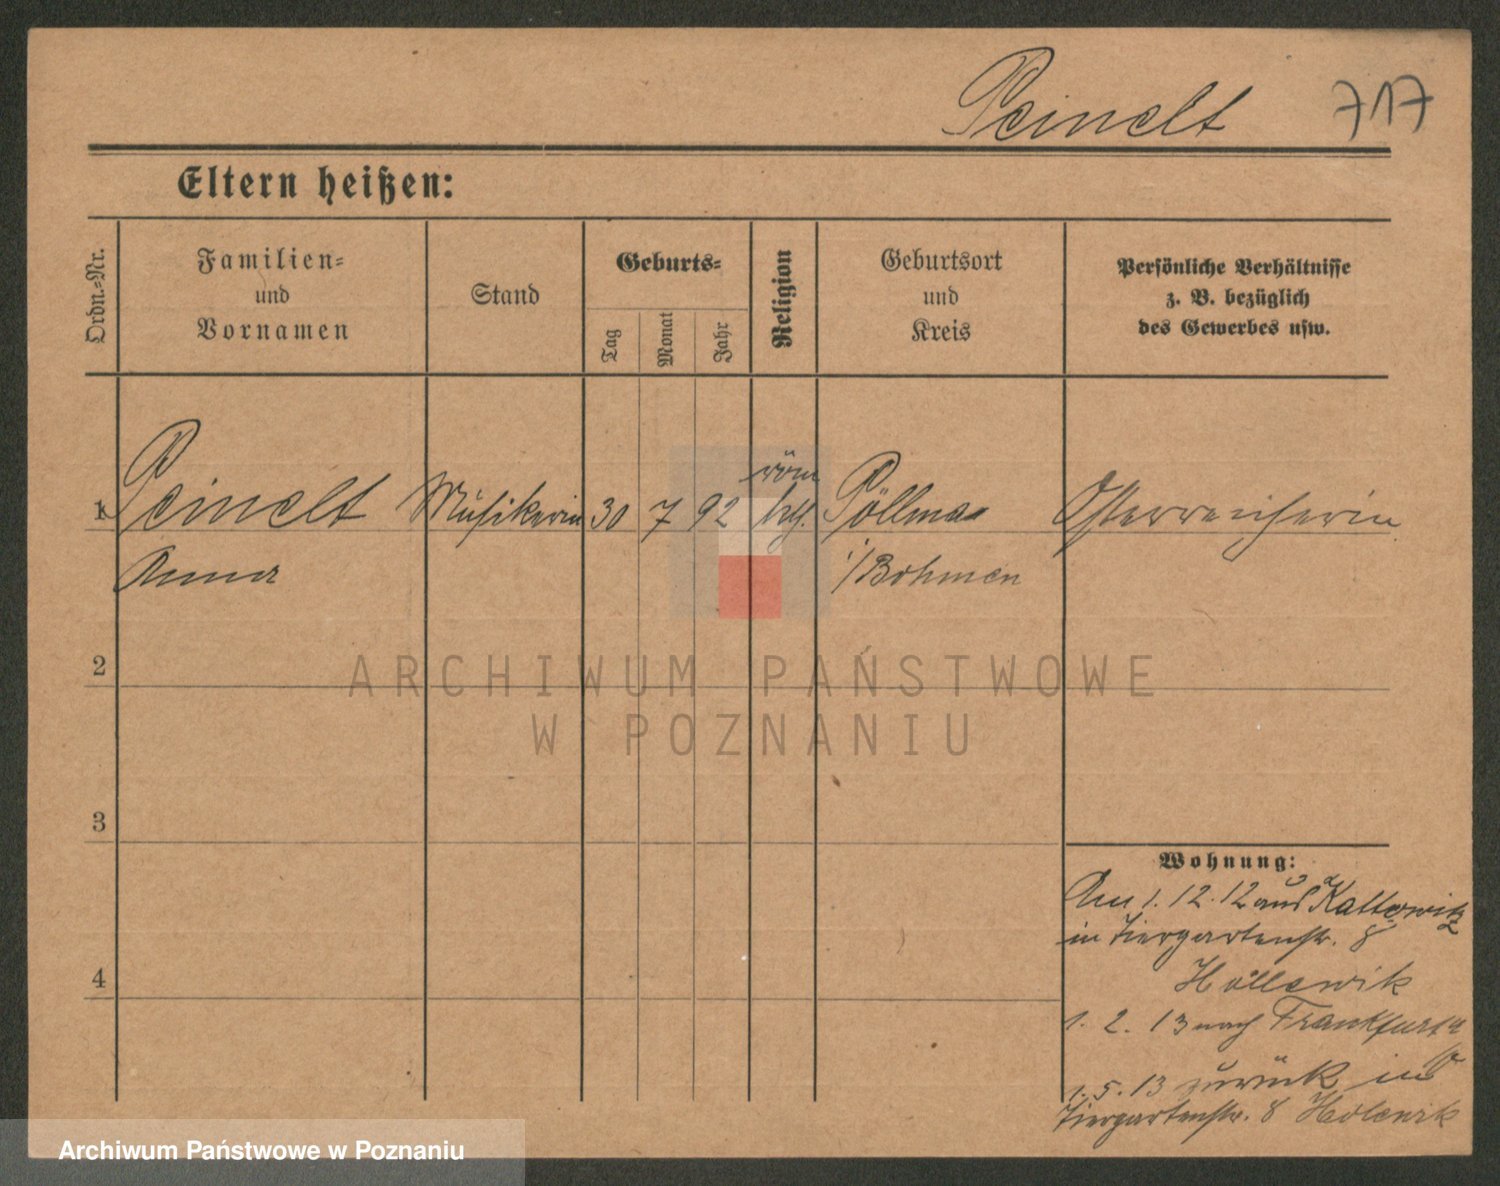 Peinelt 717
Eltern heißen:
Ordn.-Nr.
Familien-
und
Vornamen
Stand
Geburts-
Tag
Monat
Jahr
Religion
Geburtsort
und
Kreis
Persönliche Verhältnisse
z. B. bezüglich
des Gewerbes usw.
röm
1 Peinelt Musikerin 30 7 92 kth. Pöllma Österreicherin
Anna i/Bohmen
2
3
4
Wohnung:
Am 1.12.12 aus Kattowitz
in Tiergartenstr. 8
Hollewik
1. 2. 13 nach Frankfurt a
O
1. 5. 13 zurück in
Tiergartenstr. 8 Holewik
ARCHIWUM PAŃSTWOWE
W POZNANIU
Archiwum Państwowe w Poznaniu